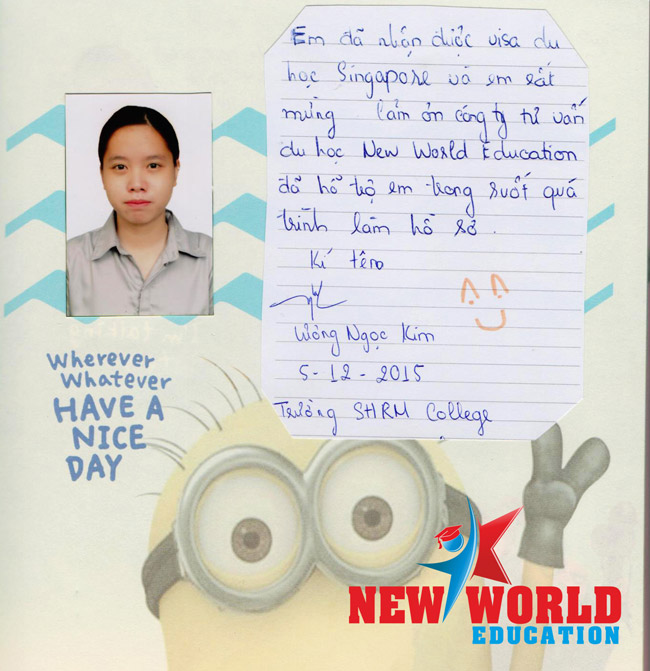 Em đã nhận được visa du
học Singapore và em rất
mừng cảm ơn công ty tư vấn
du học New World Education
đã hỗ trợ em trong suốt quá
trình làm hồ sơ.
Kí tên
Vương Ngọc Kim
5-12-2015
Trường SHRM College
Wherever
Whatever
HAVE A
NICE
DAY
NEW WORLD
EDUCATION